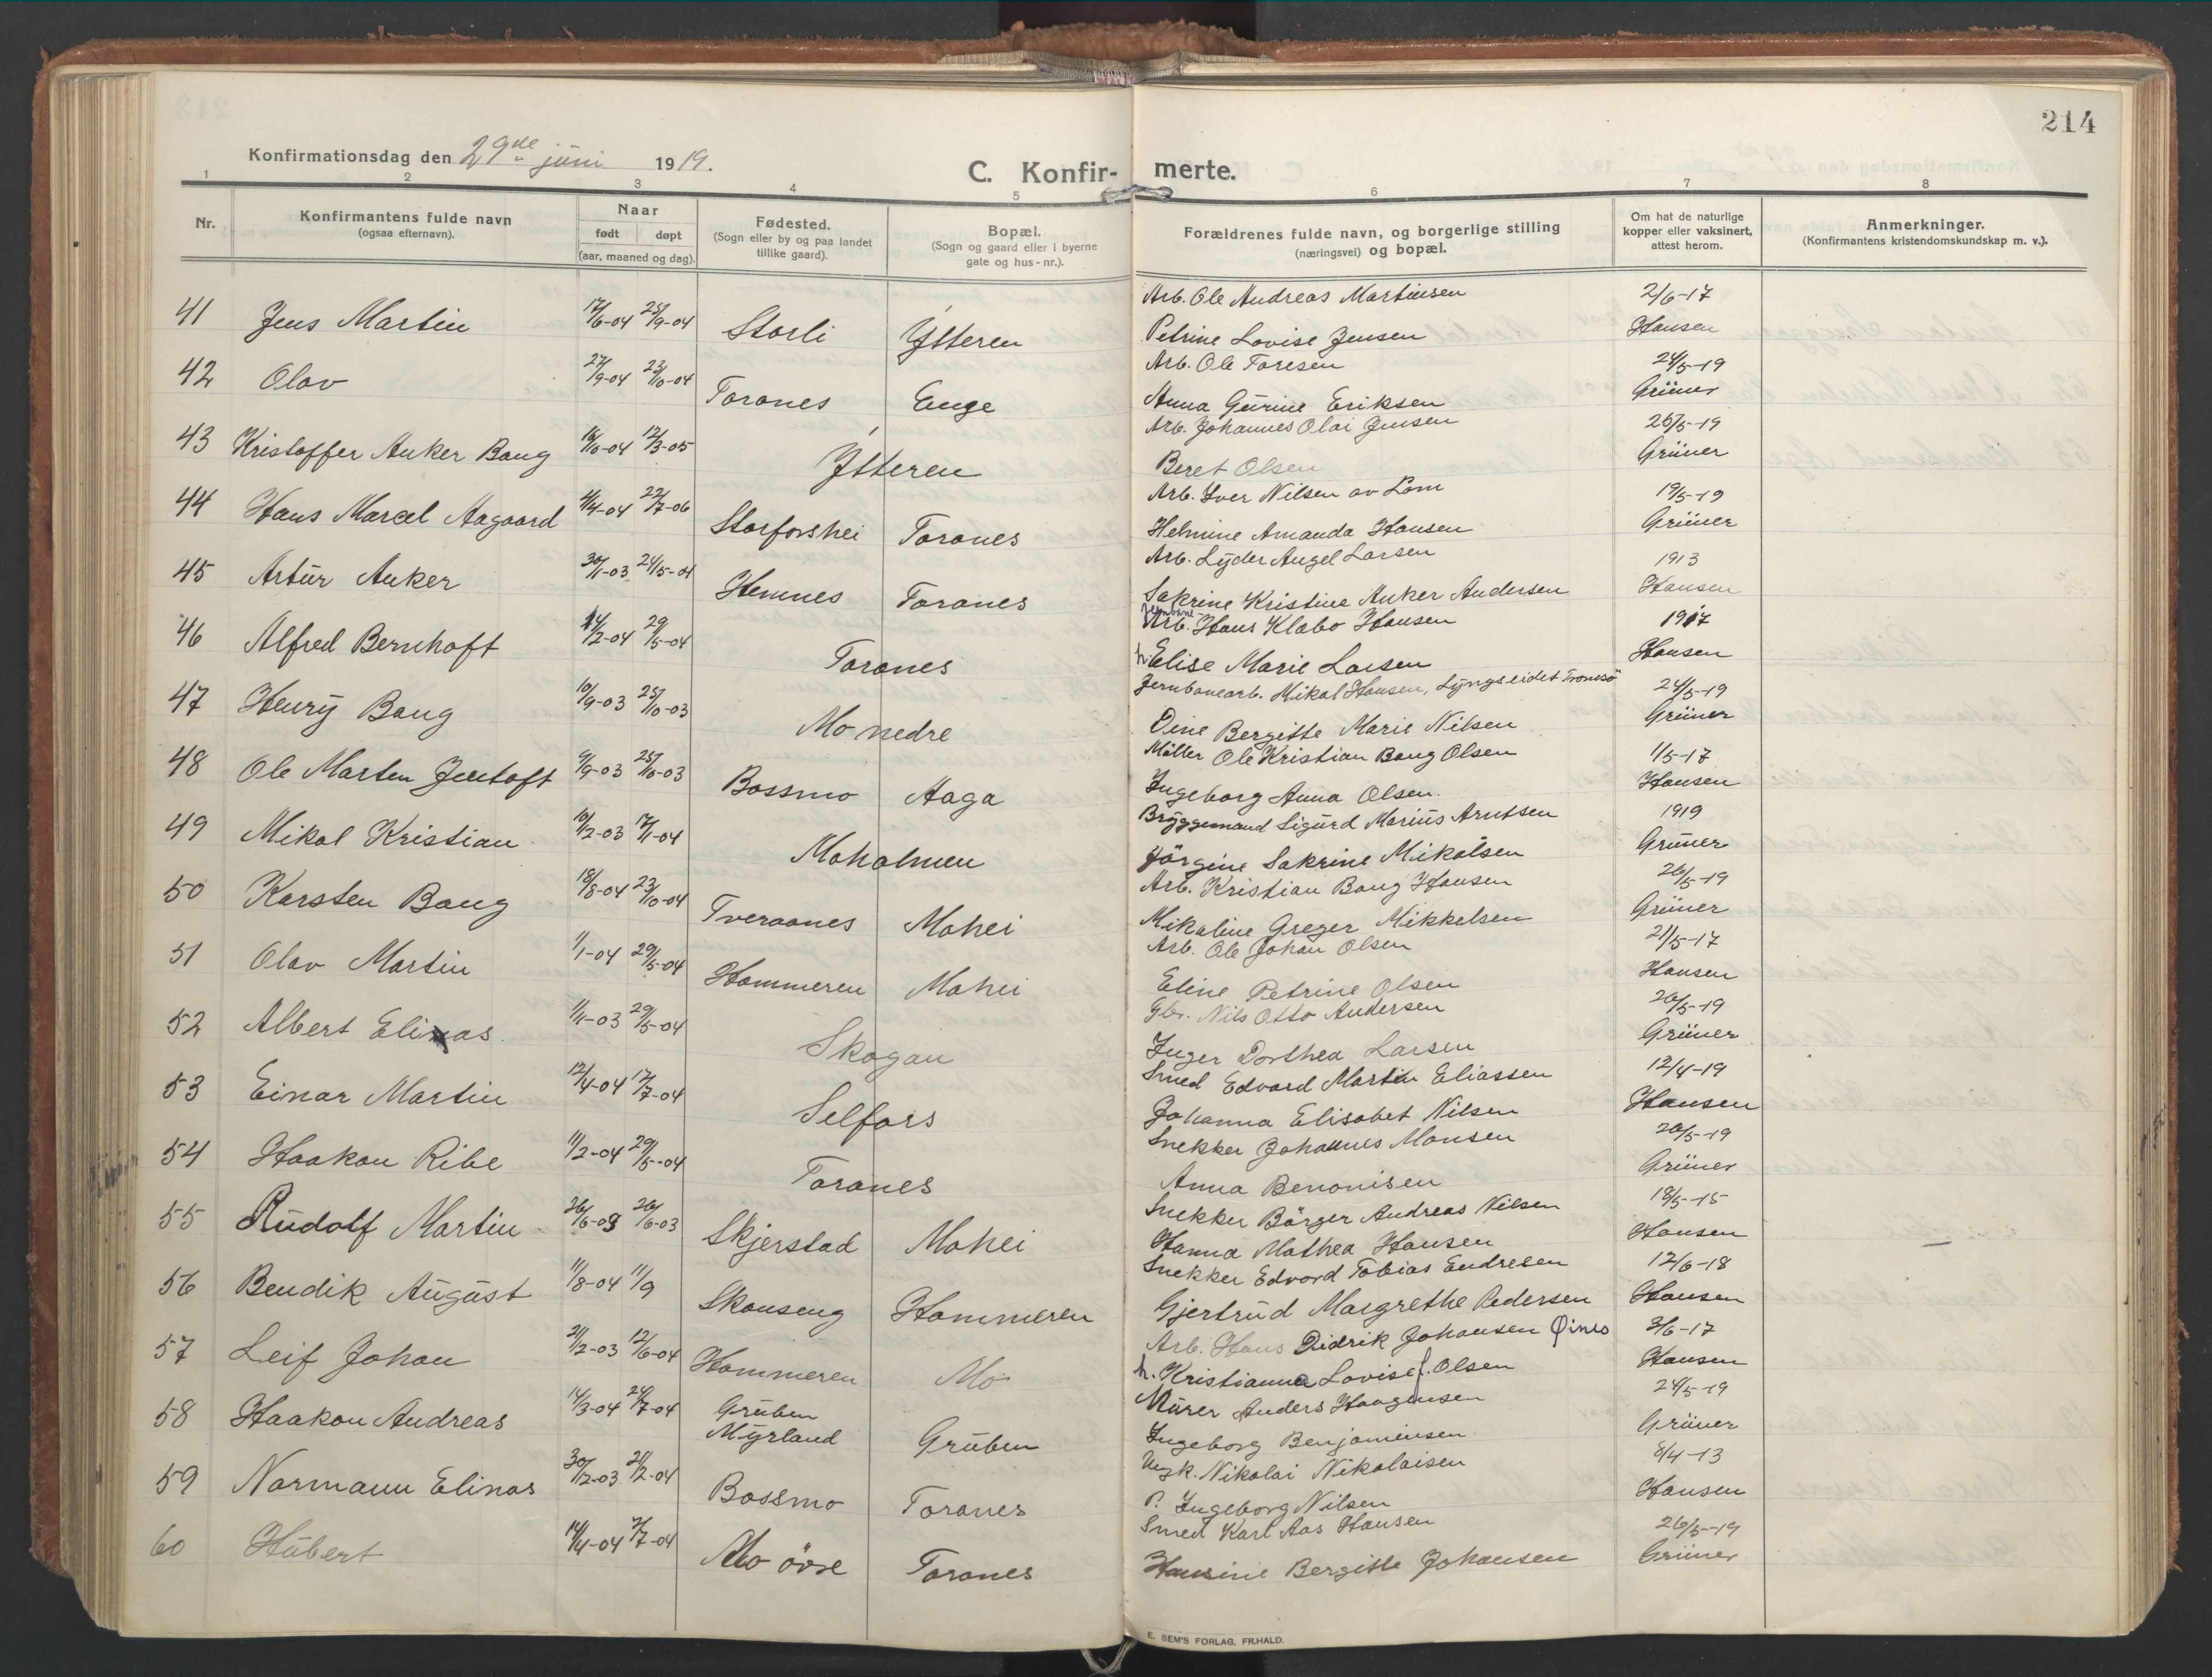 214
Konfirmationsdag den 29de juni 1919.
C. Konfir- merte.
1 2 3 4 5 6 7 8
Nr.
Konfirmantens fulde navn
(ogsaa efternavn).
Naar
født døpt
(aar, maaned og dag).
Fødested.
(Sogn eller by og paa landet
tillike gaard).
Bopæl.
(Sogn og gaard eller i byerne
gate og hus-nr.).
Forældrenes fulde navn, og borgerlige stilling
(næringsvei) og bopæl.
Om hat de naturlige
kopper eller vaksinert,
attest herom.
Anmerkninger.
(Konfirmantens kristendomskundskap m. v.).
41 Jens Martin 17/6-04 25/9-04 Storli Ytteren Arb. Ole Andreas Martinsen 2/6-17
Petrine Lovise Jensen Hansen
42 Olav 27/9-04 23/10-04 Toranes Enge Arb. Ole Toresen 24/5-19
Anna Gurine Eriksen Grüner
43 Kristoffer Anker Bang 16/10-04 12/3-05 Ytteren Arb. Johannes Olai Jensen 26/5-19
Beret Olsen Grüner
44 Hans Marcel Aagaard 4/4-04 22/7-06 Storforshei Toranes Arb. Iver Nilsen av Lom 19/5-19
Helmine Amanda Hansen Grüner
45 Artur Anker 30/11-03 24/5-04 Hemnes Toranes Arb. Lyder Angel Larsen 1913
Sakrine Kristine Anker Andersen Hansen
46 Alfred Bernhoft 14/2-04 29/5-04 Toranes Jernbane- Arb. Hans Klæbo Hansen 1917
h. Elise Marie Larsen Hansen
47 Henry Bang 10/9-03 25/10-03 Mo nedre Jernbanearb. Mikal Hansen, Lyngseidet Tromsö 24/5-19
Dine Bergitte Marie Nilsen Grüner
48 Ole Marten Jentoft 9/9-03 25/10-03 Bossmo Aaga Möller Ole Kristian Bang Olsen 1/5-17
Ingeborg Anna Olsen. Hansen
49 Mikal Kristian 10/12-03 17/1-04 Moholmen Bryggemand Sigurd Marius Arntsen 1919
Jörgine Sakrine Mikalsen Grüner
50 Karsten Bang 18/8-04 23/10-04 Tveraanes Mohei Arb. Kristian Bang Hansen 26/5-19
Mikaline Greger Mikkelsen Grüner
51 Olav Martin 1/1-04 29/5-04 Hammeren Mohei Arb. Ole Johan Olsen 21/5-17
Eline Petrine Olsen Hansen
52 Albert Elinas 1/11-03 29/5-04 Skogan Gbr. Nils Otto Andersen 26/5-19
Inger Dorthea Larsen Grüner
53 Einar Martin 12/4-04 17/7-04 Selfors Smed Edvard Martin Eliassen 12/4-19
Johanna Elisabet Nilsen Hansen
54 Haakon Ribe 11/2-04 29/5-04 Toranes Snekker Johannes Monsen 26/5-19
Anna Benonisen Grüner
55 Rudolf Martin 26/6-03 26/6-03 Skjerstad Mohei Snekker Börger Andreas Nilsen 18/5-15
Hanna Mathea Hansen Hansen
56 Bendik August 11/8-04 11/9 Skonseng Hammeren Snekker Edvard Tobias Endresen 12/6-18
Gjertrud Margrethe Pedersen Hansen
57 Leif Johan 21/12-03 12/6-04 Hammeren Mo Arb. Hans Didrik Johansen Øines 3/6-17
h. Kristianna Lovise f. Olsen Hansen
58 Haakon Andreas 14/3-04 24/7-04 Gruben Myrland Gruben Murer Anders Haagensen 24/5-19
Ingeborg Benjaminsen Grüner
59 Normann Elinas 30/12-03 21/2-04 Bossmo Toranes Ungk. Nikolai Nikolaisen 8/4-13
P. Ingeborg Nilsen Hansen
60 Hubert 14/4-04 3/7-04 Mo övre Toranes Smed Karl Aas Hansen 26/5-19
Hansine Bergitte Johansen Grüner
E. SEM'S FORLAG, FR.HALD.